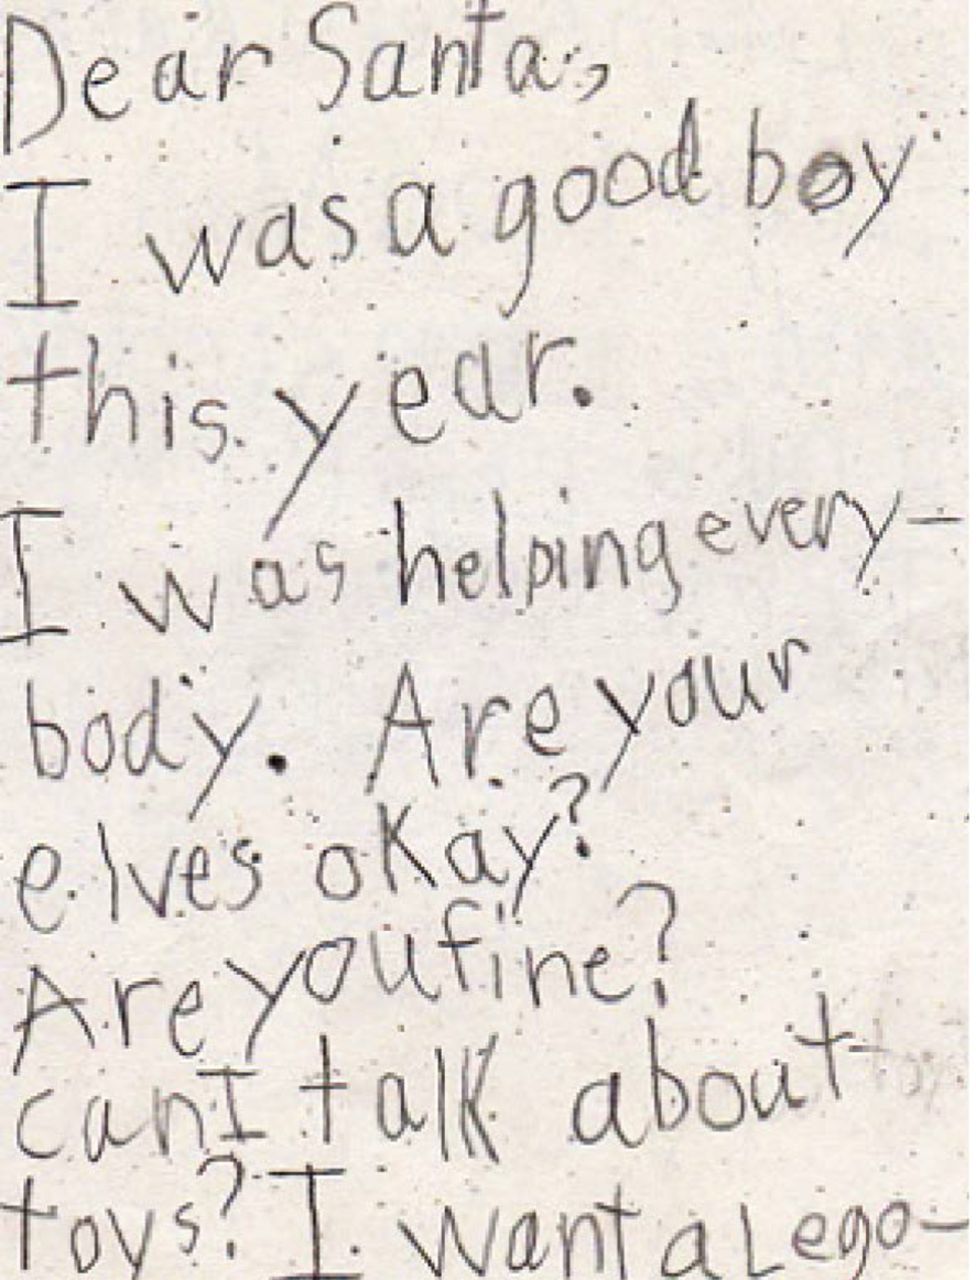 Dear Santa,
I was a good boy
this year.
I was helping every-
body. Are your
elves okay?
Are you fine?
can I talk about
toys? I want a Lego-